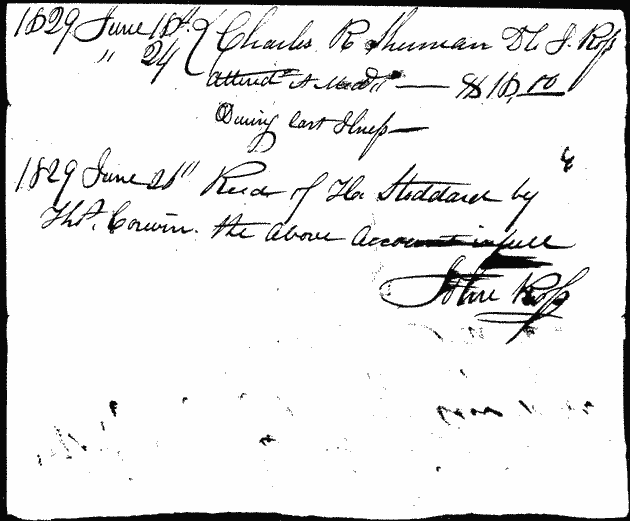 1829 June 18th. { Charles R Sherman Dr J. Ross
" 24
attendce & Medcs — $ 18,00
During last Illness —
1829 June 28" Recd of Hr Stoddard by
Thos. Corwin. the above account in full
John Ross